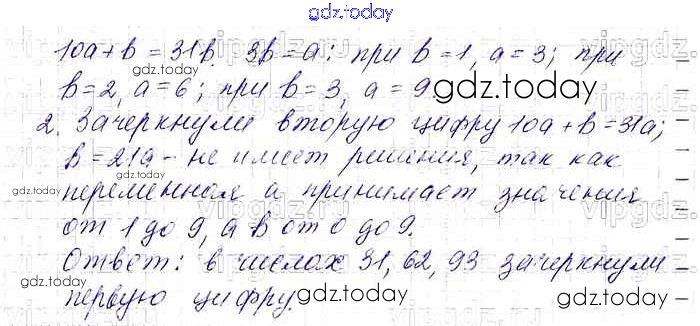 gdz.today
10a+b = 31b. 3b = a: при b = 1, a = 3; при
b=2, a=6; при b = 3, a = 9.
2. Зачеркнули вторую цифру 10a+b=31a;
b = 21a - не имеет решения, так как
переменная a принимает значения
от 1 до 9, a b от 0 до 9.
Ответ: в числах 31, 62, 93 зачеркнули
первую цифру.
gdz.today
gdz.today
gdz.today
gdz.today
gdz.today
gdz.today
gdz.today